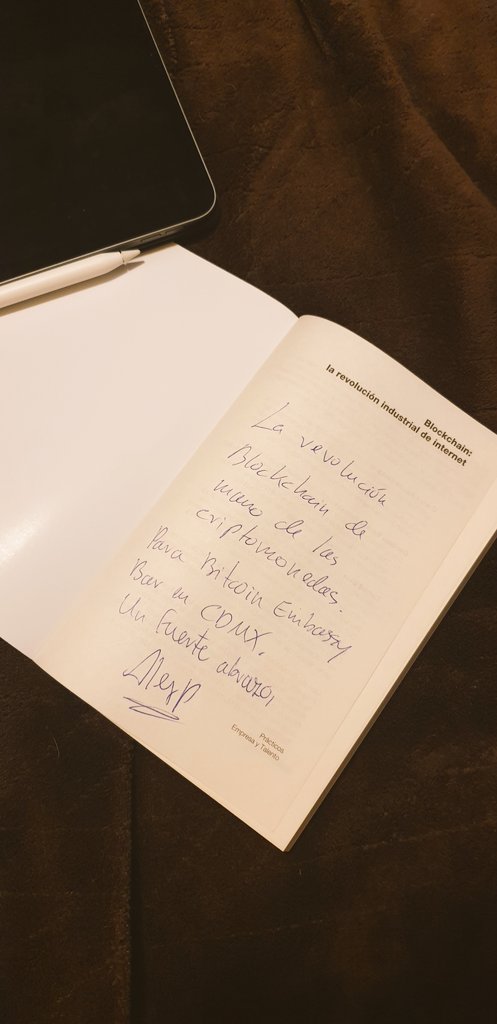 Blockchain:
la revolución industrial de internet
La revolución
Blockchain de
mano de las
criptomonedas.
Para Bitcoin Embassy
Bar en CDMX.
Un fuerte abrazo,
Prácticos
Empresa y Talento